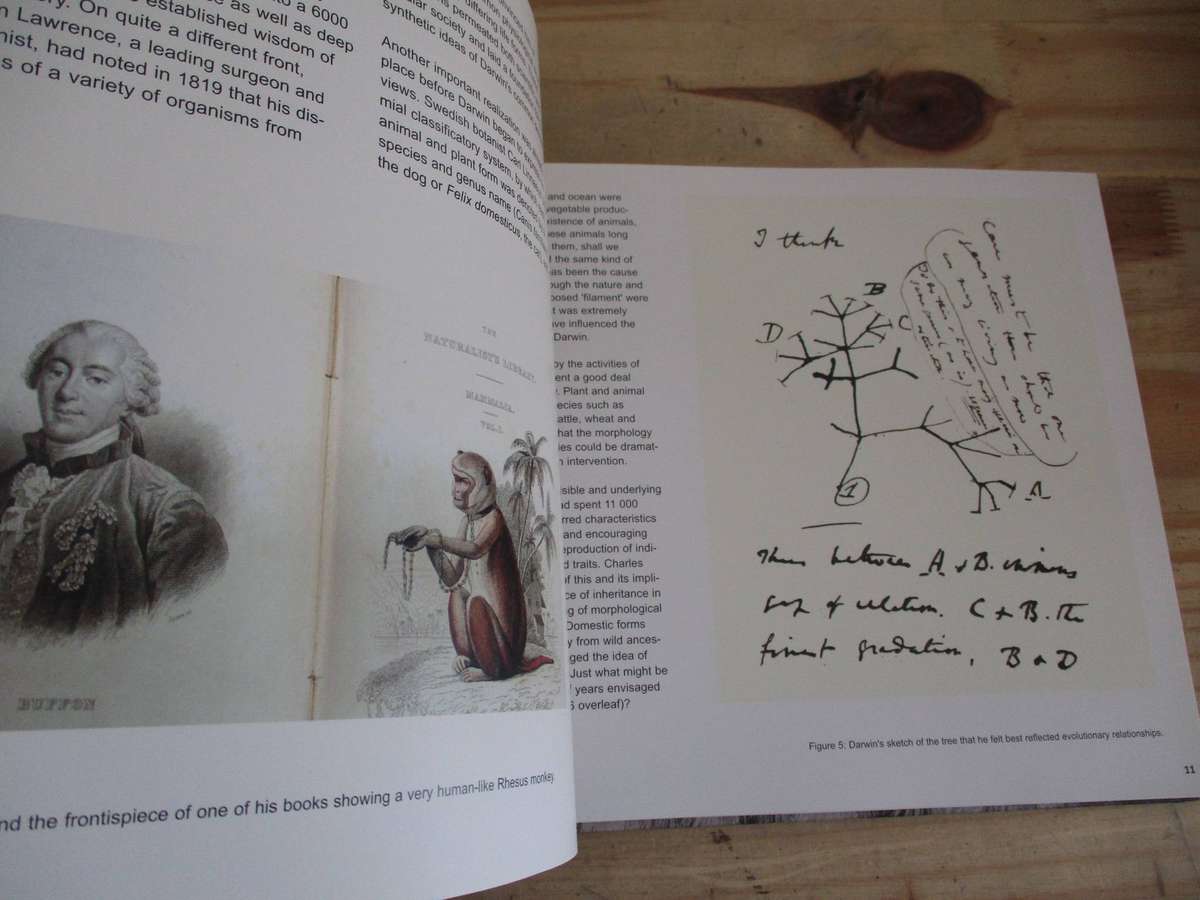 to a 6000
as well as deep
established wisdom of
On quite a different front,
Lawrence, a leading surgeon and
nist, had noted in 1819 that his dis-
s of a variety of organisms from
synthetic ideas of Darwin's
Another important realization was
place before Darwin began to
views. Swedish botanist Carl
mial classificatory system, by which
animal and plant form was
species and genus name (Canis
the dog or Felix domesticus, the cat
BUFFON
THE
NATURALIST'S LIBRARY.
MAMMALIA.
VOL. I.
nd the frontispiece of one of his books showing a very human-like Rhesus monkey.
and ocean were
vegetable produc-
existence of animals,
ese animals long
them, shall we
the same kind of
as been the cause
ough the nature and
posed 'filament' were
t was extremely
ave influenced the
Darwin.
by the activities of
ent a good deal
. Plant and animal
ecies such as
attle, wheat and
hat the morphology
ies could be dramat-
n intervention.
isible and underlying
ad spent 11 000
rred characteristics
and encouraging
eproduction of indi-
d traits. Charles
of this and its impli-
ce of inheritance in
g of morphological
Domestic forms
y from wild ances-
ged the idea of
Just what might be
years envisaged
6 overleaf)?
I think
B
C
D
A
1
Case must be that one
generation then should be
as many living as now
Thus between A & B. immens
gap of relation. C & B. the
finest gradation, B & D
Figure 5: Darwin's sketch of the tree that he felt best reflected evolutionary relationships.
11